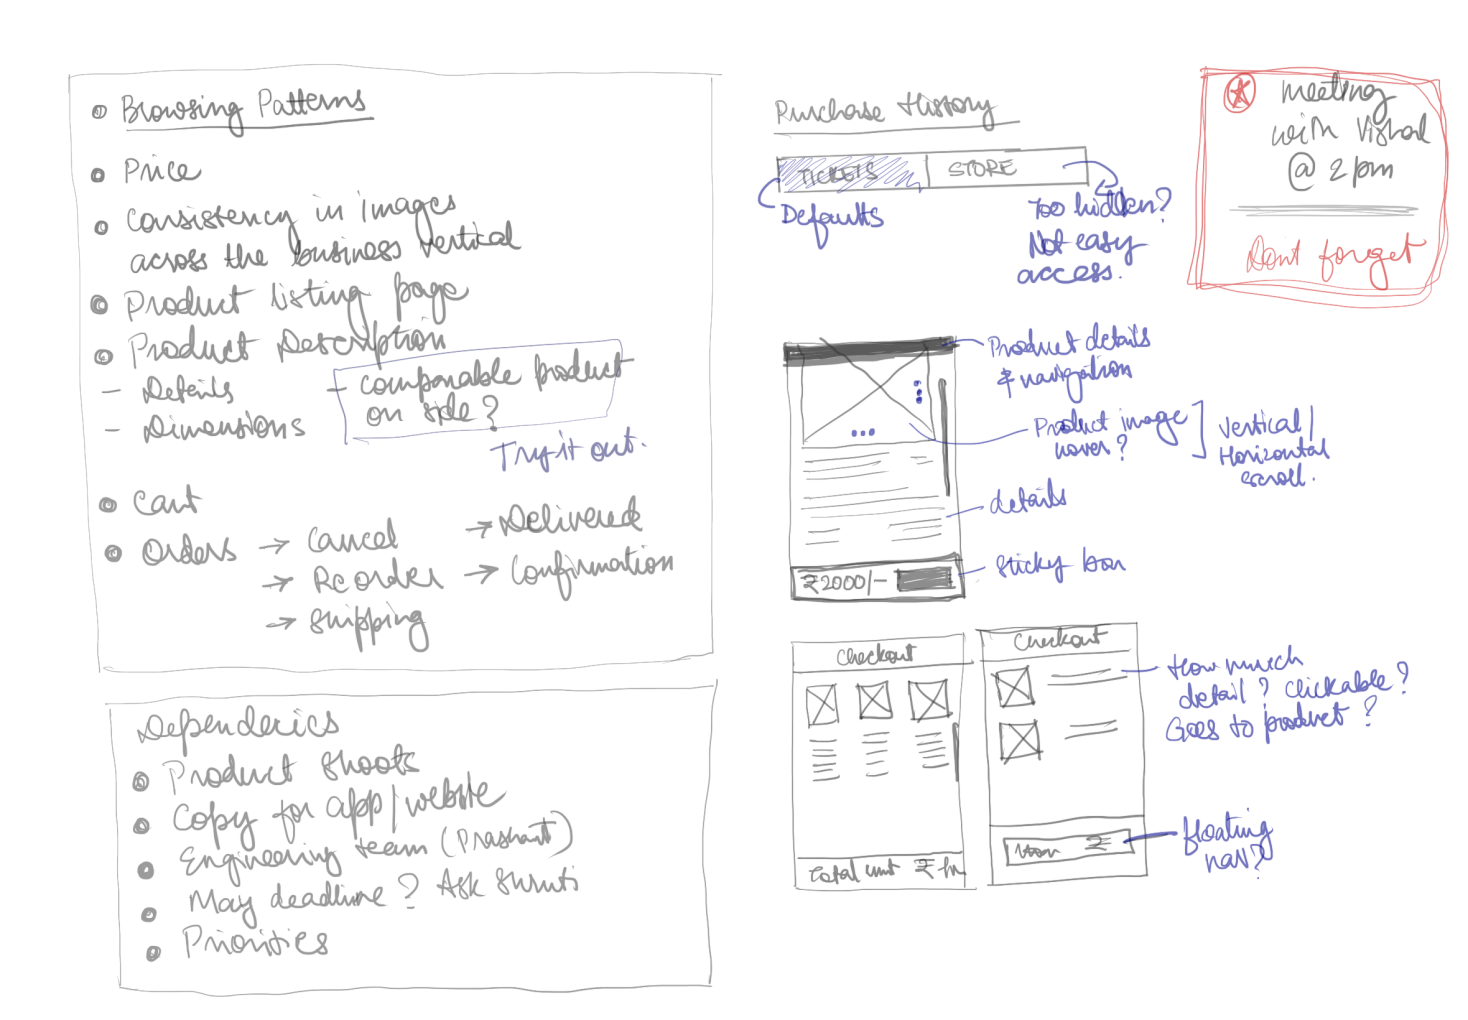 Browsing Patterns
Price
Consistency in images
across the business vertical
Product listing page
Product Description
- Details
- Dimensions
- comparable product
on side?
Try it out.
Cart
Orders → Cancel → Delivered
→ Reorder → Confirmation
→ Shipping
Dependencies
Product Shoots
Copy for app/website
Engineering team (Prashant)
May deadline? Ask Shruti
Priorities
Purchase History
TICKETS STORE
Defaults
Too hidden?
Not easy
access.
meeting
with Vishal
@ 2pm
Dont forget
Product details
& navigation
Product image
hover?
Vertical/
Horizontal
scroll.
details
Sticky bar
₹2000/-
Checkout
Total
₹
Checkout
₹
How much
detail? Clickable?
Goes to product?
floating
nav?